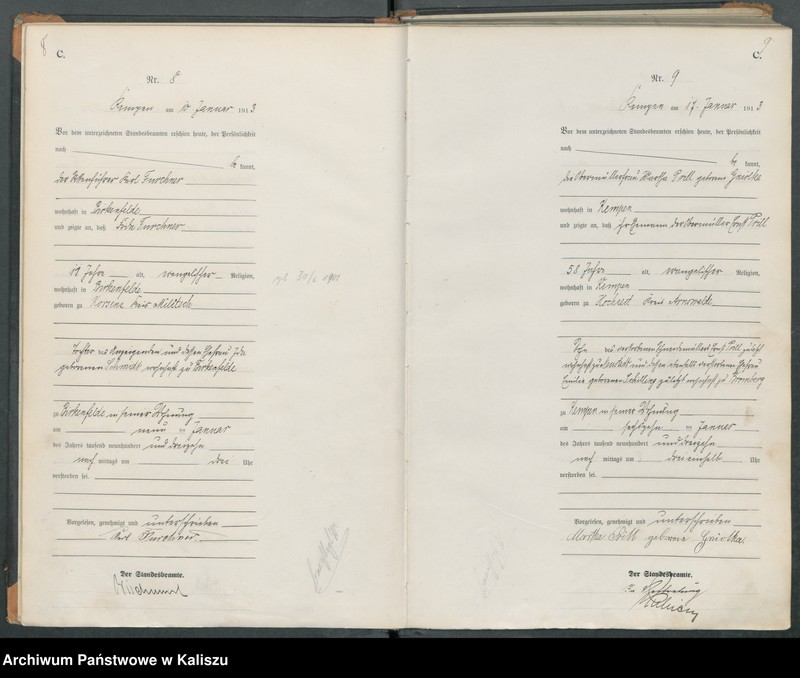 8
C.
Nr. 8
Kempen am 10. Januar 1913
Vor dem unterzeichneten Standesbeamten erschien heute, der Persönlichkeit
nach be kannt,
der Karl Turchner
wohnhaft in Birkenfelde
und zeigte an, daß Frida Turchner
11 Jahre alt, evangelischer Religion,
wohnhaft in Birkenfelde
geboren zu Kreis Militsch
Tochter des Anzeigenden und dessen Ehefrau Ida
geborenen Schmidt wohnhaft zu Birkenfelde
zu Birkenfelde in seiner Wohnung
am neun ten Januar
des Jahres tausend neunhundert und dreizehn
nach mittags um drei Uhr
verstorben sei.
Vorgelesen, genehmigt und unterschrieben
Karl Turchner
Der Standesbeamte.
9
C.
Nr. 9
Kempen am 17. Januar 1913
Vor dem unterzeichneten Standesbeamten erschien heute, der Persönlichkeit
nach be kannt,
die Obermüllerfrau Martha Prill geborene Gniolka
wohnhaft in Kempen
und zeigte an, daß ihr Ehemann der Obermüller Ernst Prill
58 Jahre alt, evangelischer Religion,
wohnhaft in Kempen
geboren zu Kreis Arnswalde
Sohn des verstorbenen Schneidemüllers Ernst Prill zuletzt
wohnhaft zu und dessen ebenfalls verstorbenen Ehefrau
Emilie geborenen Schilling zuletzt wohnhaft zu
zu Kempen in seiner Wohnung
am sechszehn ten Januar
des Jahres tausend neunhundert und dreizehn
nach mittags um drei einhalb Uhr
verstorben sei.
Vorgelesen, genehmigt und unterschrieben
Martha Prill geborene Gniolka.
Der Standesbeamte.
In Vertretung
Archiwum Państwowe w Kaliszu